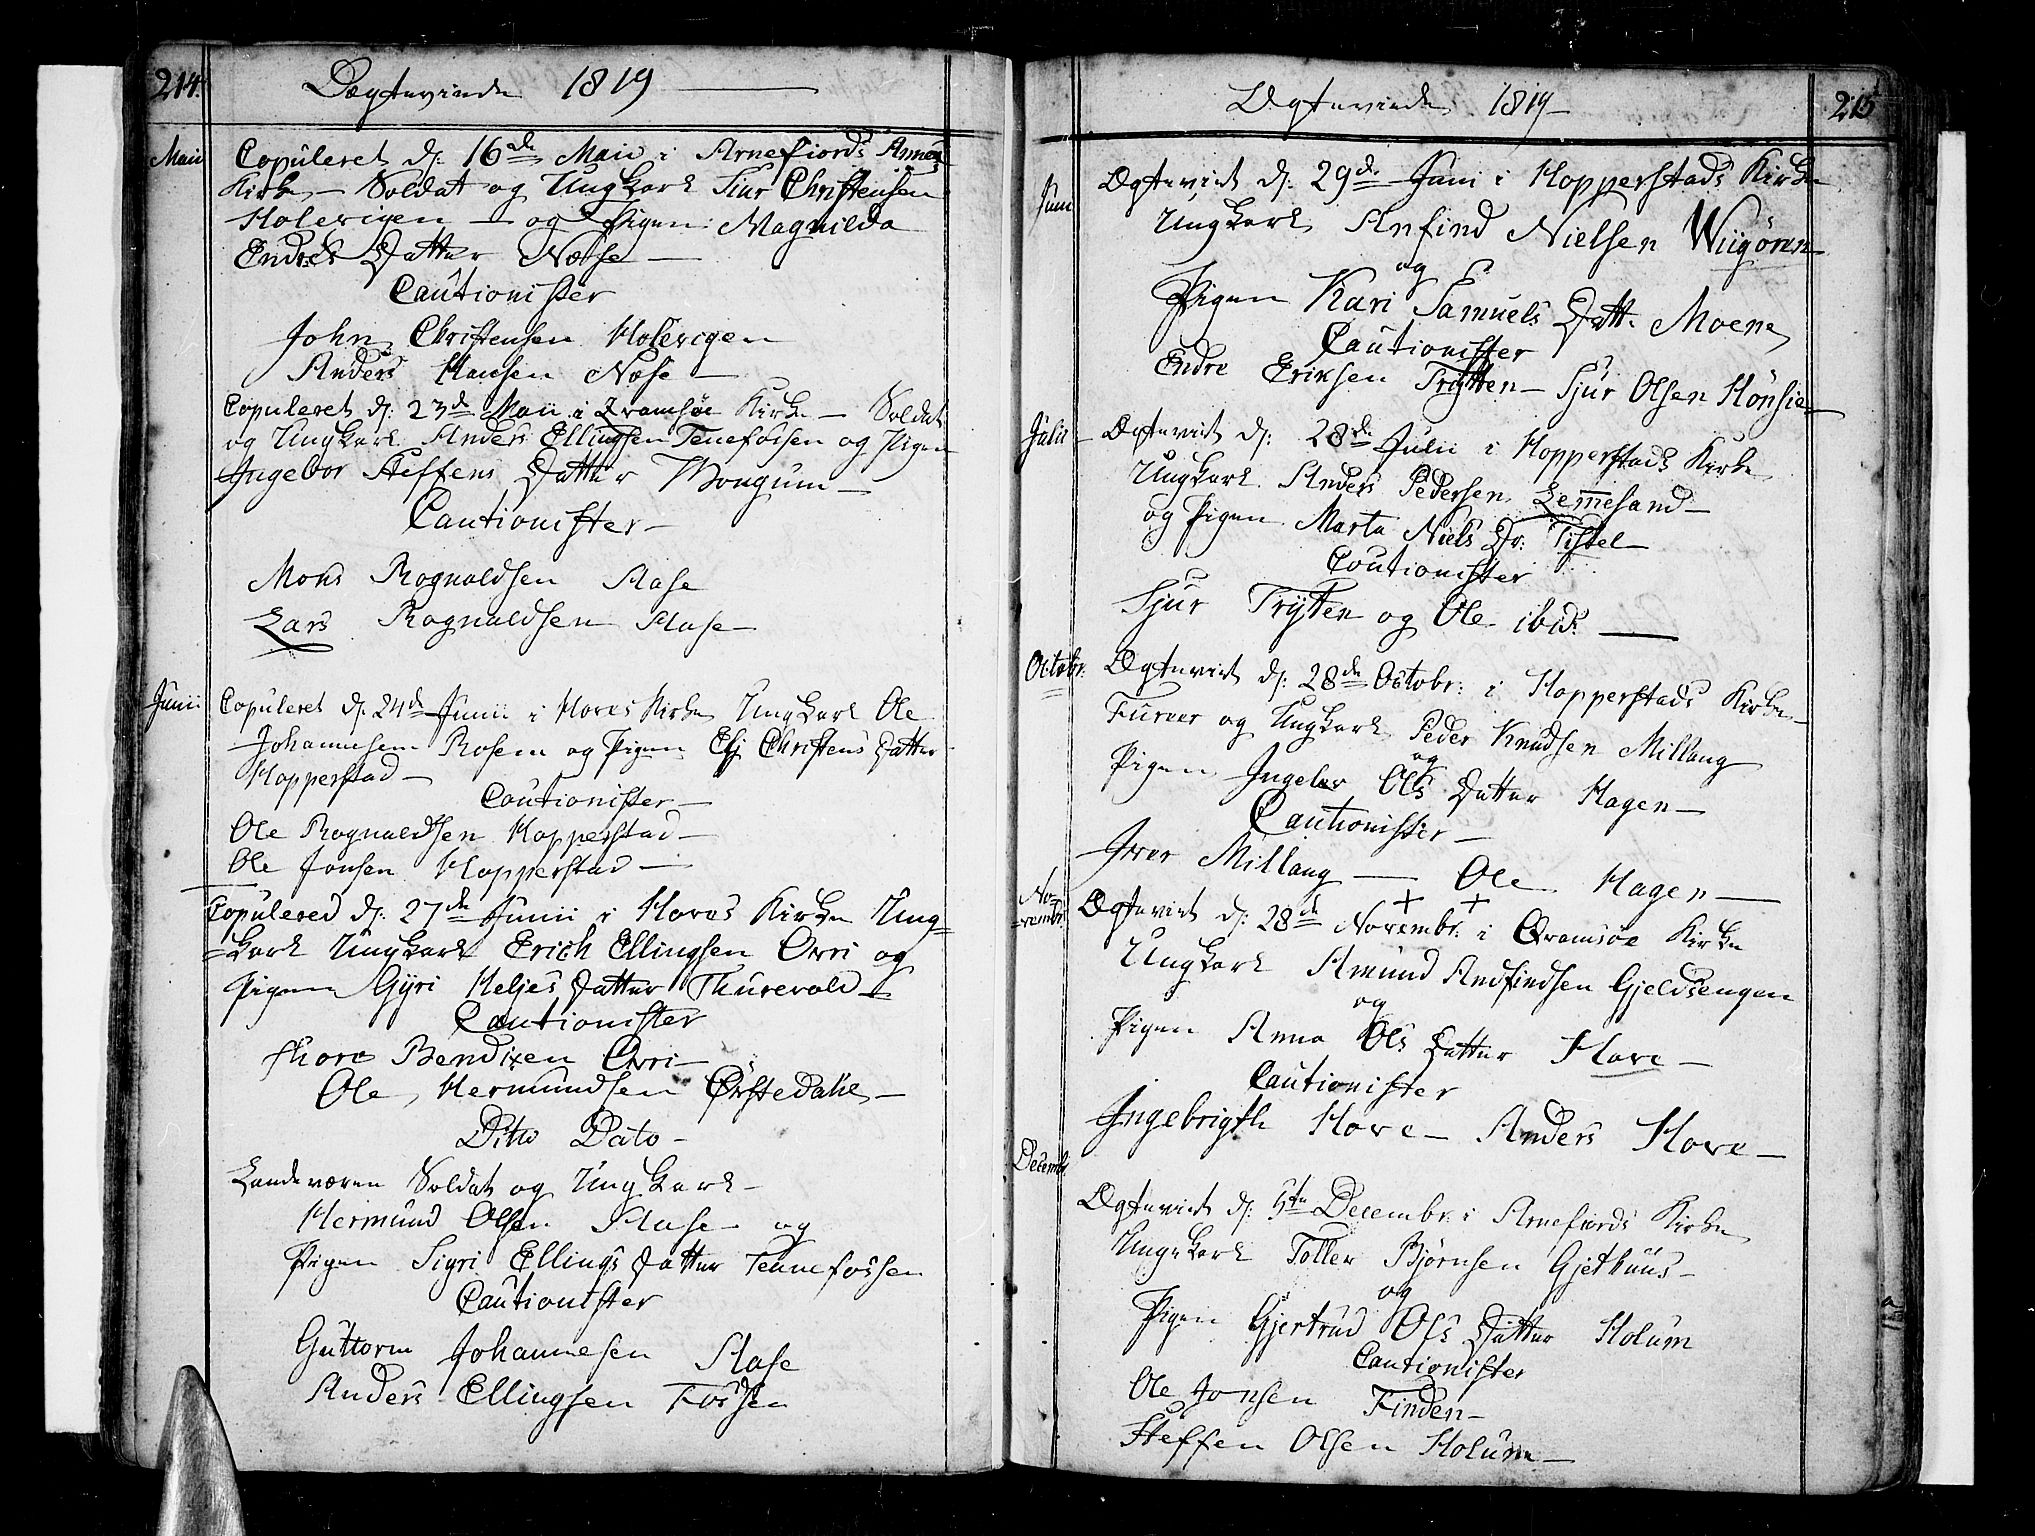 214.
Ægtevinde 1819
Maii
Copuleret d: 16de Maii i Arnefiords Annex
Kirke – Soldat og Ungkarl Siur Christensen
Holevigen – og Pigen Magnilda
Endres Datter Næse –
Cautionister
John Christensen Holevigen
Anders Hansen Næse –
Copuleret d: 23de Maii i Qvamsøe Kirke – Soldat
og Ungkarl Anders Ellingsen Tenefossen og Pigen
Ingebor Steffens Datter Wongum –
Cautionister –
Mons Rognaldsen Hase
Lars Rognaldsen Hase –
Junii
Copuleret d: 24de Junii i Hoves Kirke Ungkarl Ole
Johannesen Rosem og Pigen Eli Christens Datter
Hopperstad –
Cautionister –
Ole Rognaldsen Hopperstad –
Ole Jonsen Hopperstad –
Copulered d: 27de Junii i Hoves Kirke Ung=
=karl Ungkarl Erich Ellingsen Orri og
Pigen Gÿri Heljes Datter Thurevold –
Cautionister
Thore Bendixen Orri –
Ole Hermundsen Ørstedahl –
Ditto Dato –
Landeværen Soldat og Ungkarl –
Hermund Olsen Hase – og
Pigen Sigri Ellings Datter Tennefossen
Cautionister
Guttorm Johannesen Hase
Anders Ellingsen Fossen
Ægtevinde 1819 –
215
Juni
Ægteviet d: 29de Juni i Hopperstads Kirke
Ungkarl Anfind Nielsen Wiigøren –
og
Pigen Kari Samuels Datt. Moene
Cautionister
Endre Eriksen Trÿtten – Sjur Olsen Hønsie –
Julii –
Ægteviet d: 28de Julii i Hopperstads Kirke
Ungkarl Anders Pedersen Lem̅esand –
og Pigen Marta Niels Dr: Tistel –
Cautionister
Sjur Trÿtten og Ole ibid: –
Octobr:
Ægteviet d: 28de Octobr: i Hopperstads Kirke –
Fureer og Ungkarl Peder Knudsen Millang
og
Pigen Ingebor Ols Datter Hagen –
Cautionister –
Iver Millang – Ole Hagen –
No=
=vembr:
Ægteviet d: 28de Novembr: i Qvamsøe Kirke
Ungkarl Amund Andfindsen Gjeldsengen
og
Pigen Anna Ols Datter Hove –
Cautionister
Ingebrigth Hove – Anders Hove –
Decembr
Ægteviet d: 5te Decembr: i Arnefiords Kirke
Ungkarl Toller Bjørnsen Gjethuus –
og
Pigen Gjertrud Ols Datter Holum
Cautionister
Ole Jonsen Finden –
Steffen Olsen Holum –